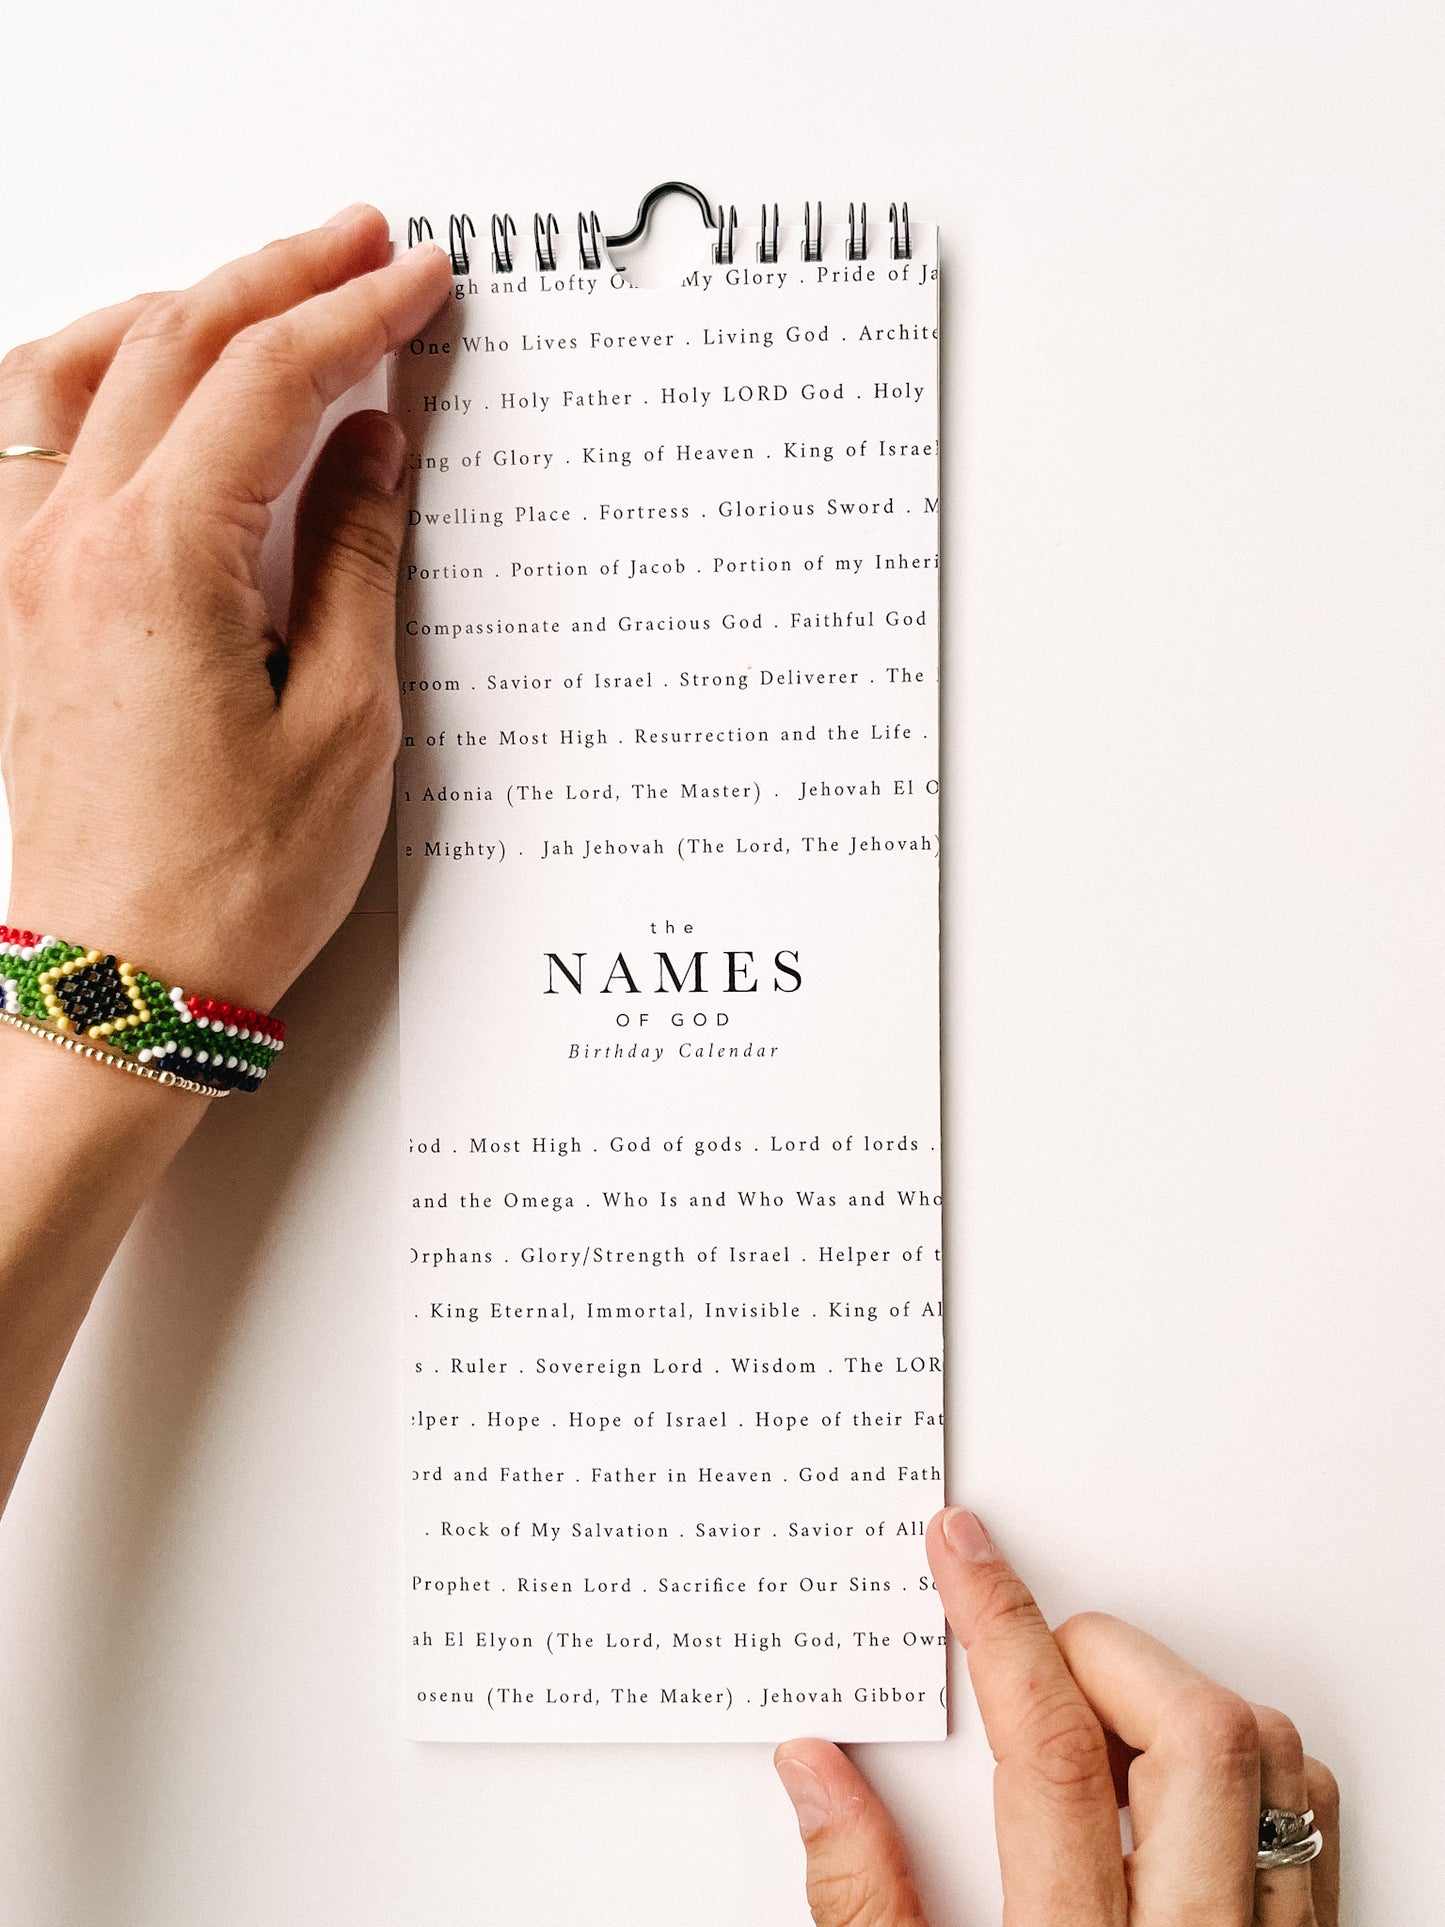 and Lofty My Glory . Pride of
One Who Lives Forever . Living God .
. Holy . Holy Father . Holy LORD God . Holy
of Glory . King of Heaven . King of Israel
Dwelling Place . Fortress . Glorious Sword .
Portion . Portion of Jacob . Portion of my
Compassionate and Gracious God . Faithful God
. Savior of Israel . Strong Deliverer . The
of the Most High . Resurrection and the Life .
Adonia (The Lord, The Master) . Jehovah El
Mighty) . Jah Jehovah (The Lord, The Jehovah)
the
NAMES
OF GOD
Birthday Calendar
God . Most High . God of gods . Lord of lords .
and the Omega . Who Is and Who Was and Who
Orphans . Glory/Strength of Israel . Helper of
. King Eternal, Immortal, Invisible . King of
. Ruler . Sovereign Lord . Wisdom . The
. Hope . Hope of Israel . Hope of their
and Father . Father in Heaven . God and
. Rock of My Salvation . Savior . Savior of All
Prophet . Risen Lord . Sacrifice for Our Sins .
El Elyon (The Lord, Most High God, The
(The Lord, The Maker) . Jehovah Gibbor (